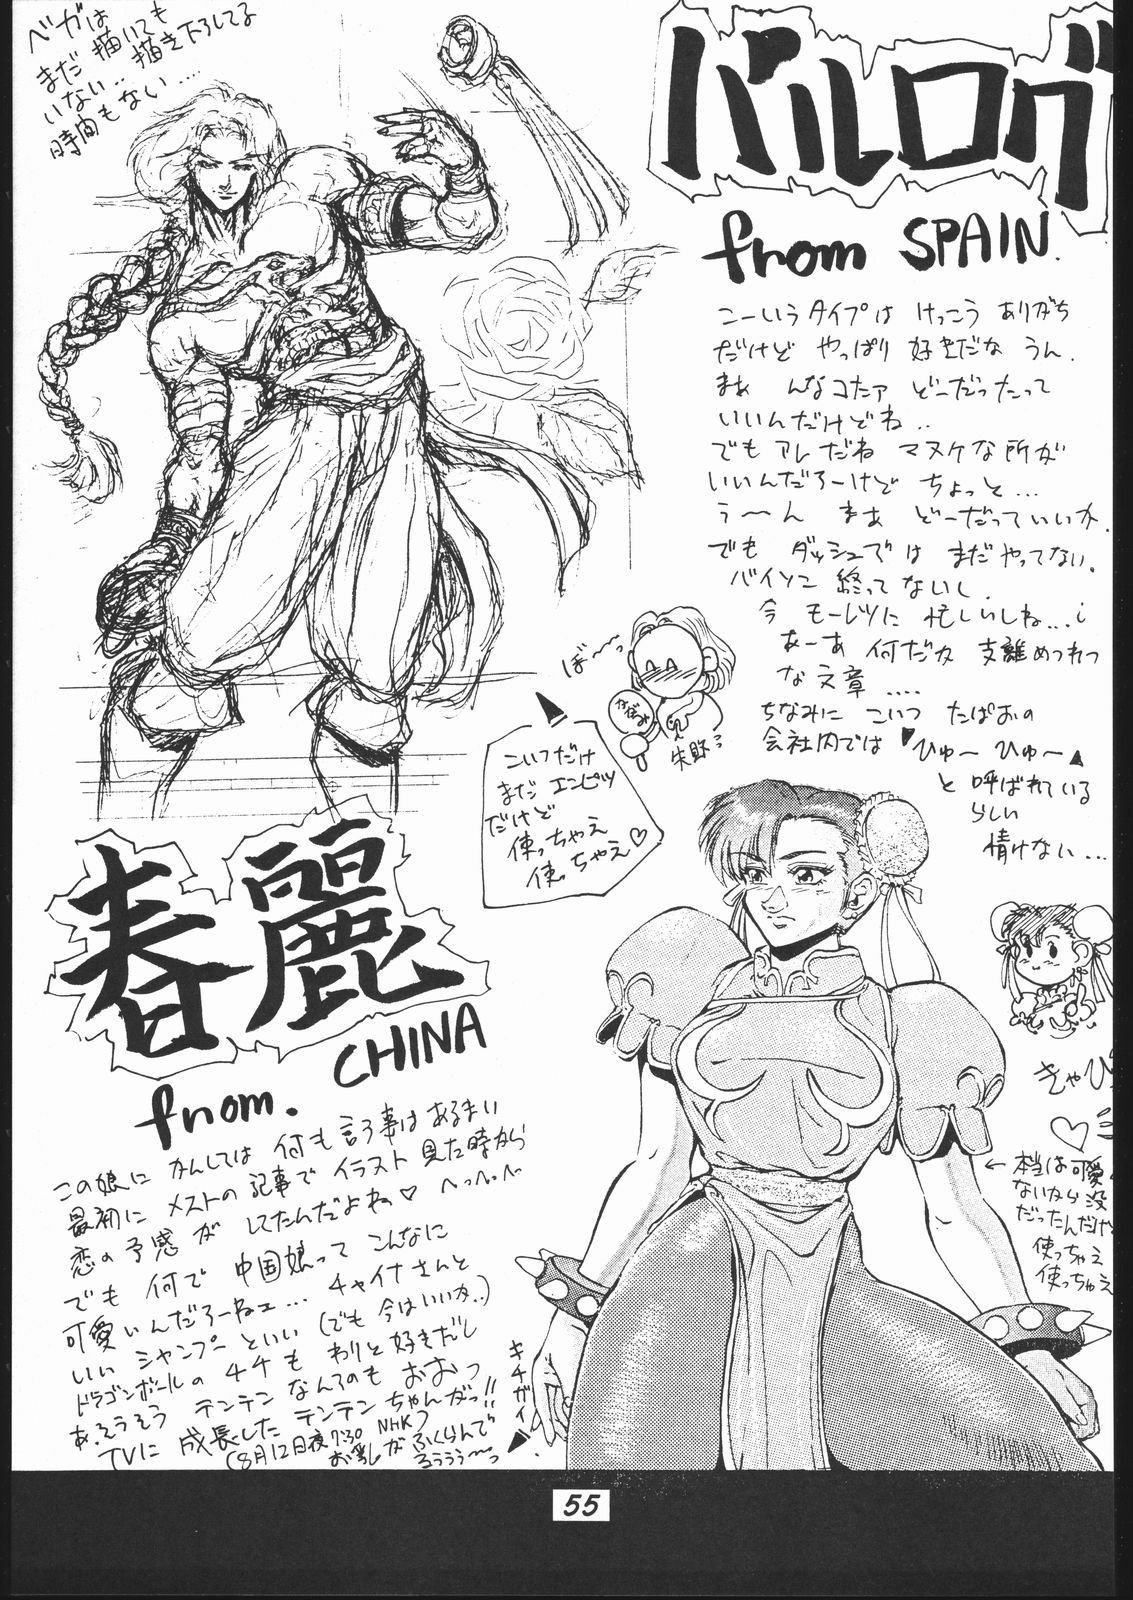 バルログ
from SPAIN.
こーいうタイプは けっこう ありがち
だけど やっぱり 好きだな うん.
まぁ んなコたァ どーだったって
いいんだけどね..
でも アレだね マヌケな所が
いいんだろーけど ちょっと...
う〜ん まぁ どーだっていいか.
でも ダッシュでは まだやってない.
バイソン 終ってないし.
今 モーレツに 忙しいしね...
あーあ 何だか 支離めつれつ
な文章....
ちなみに こいつ たぱおの
会社内では "ひゅ〜 ひゅ〜"
と 呼ばれている
らしい
情けない...
ベガは
まだ 描いても
いない.. 描き下ろしてる
時間もない....
ぼ〜っ
失敗
こいつだけ
まだ エンピツ
だけど
使っちゃえ
使っちゃえ♡
春麗
from. CHINA
この娘に かんしては 何も 言う事は あるまい
最初に メストの 記事で イラスト 見た時から
恋の予感が してたんだよね♡ へっへっへ
でも 何で 中国娘って こんなに
可愛いんだろーねェ... チャイナさんと
いい シャンプーといい (でも 今はいいか..)
ドラゴンボールの チチも わりと好きだし
あ.そうそう テンテン なんてのも おおっ
TVに 成長した テンテンちゃんがっ!!
(8月12日夜7:30 NHK)
お乳が ふくらんで
るぅぅぅ〜っ
キチガイ
きゃぴ
♡
← 本当は可愛
ないから 没
だったんだけ
使っちゃえ
使っちゃえ
55